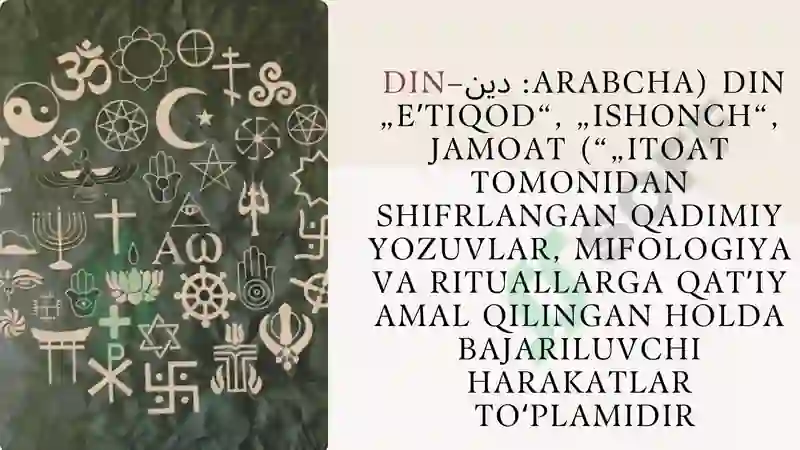 DIN–دين :ARABCHA) DIN
„EʼTIQOD“, „ISHONCH“,
JAMOAT (“„ITOAT
TOMONIDAN
SHIFRLANGAN QADIMIY
YOZUVLAR, MIFOLOGIYA
VA RITUALLARGA QATʼIY
AMAL QILINGAN HOLDA
BAJARILUVCHI
HARAKATLAR
TOʻPLAMIDIR